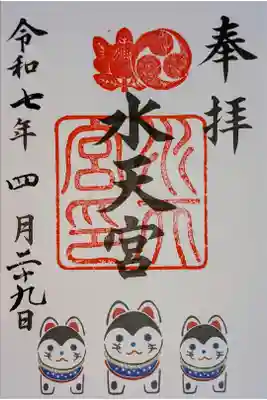 奉拝
水天宮
水天宮印
令和七年四月二十九日